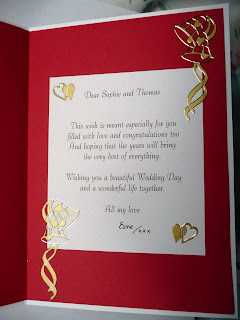 Dear Sophie and Thomas
This wish is meant especially for you
filled with love and congratulations too
And hoping that the years will bring
the very best of everything.
Wishing you a beautiful Wedding Day
and a wonderful life together.
All my love
Esme /xxx